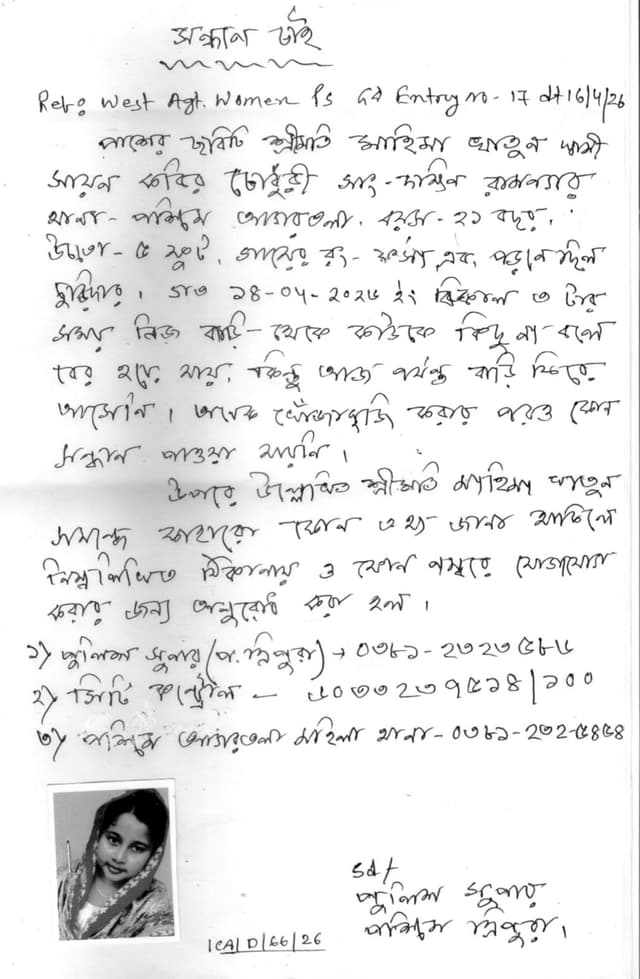 সন্ধান চাই
Ref:- West Agt. Women PS GD Entry no - 17 dt 16/4/26
পাশের ছবিটি শ্রীমতি মাহিমা খাতুন স্বামী
সায়ন কবির চৌধুরী সাং- দক্ষিন রামনগর
থানা - পশ্চিম আগরতলা, বয়স - ২১ বছর,
উচ্চতা - ৫ ফুট, গায়ের রং - ফর্সা, এবং পড়নে ছিল
চুরিদার। গত ১৪-০৪-২০২৬ ইং বিকাল ৩ টার
সময় নিজ বাড়ি থেকে কাউকে কিছু না বলে
বের হয়ে যায়, কিন্তু আজ পর্যন্ত বাড়ি ফিরে
আসেনি। অনেক খোঁজাখুজি করার পরও কোন
সন্ধান পাওয়া যায়নি।
উপরে উল্লেখিত শ্রীমতি মাহিমা খাতুন
সমন্ধে কাহারো কোন তথ্য জানা থাকিলে
নিম্নলিখিত ঠিকানায় ও ফোন নম্বরে যোগাযোগ
করার জন্য অনুরোধ করা হল।
১) পুলিশ সুপার (প. ত্রিপুরা) → ০৩৮১-২৩২৩৫৮৬
২) সিটি কন্ট্রোল -
৩) পশ্চিম আগরতলা মহিলা থানা - ০৩৮১-২৩২-৫৪৫৪
sd/
পুলিশ সুপার
পশ্চিম ত্রিপুরা।
ICA/D/66/26